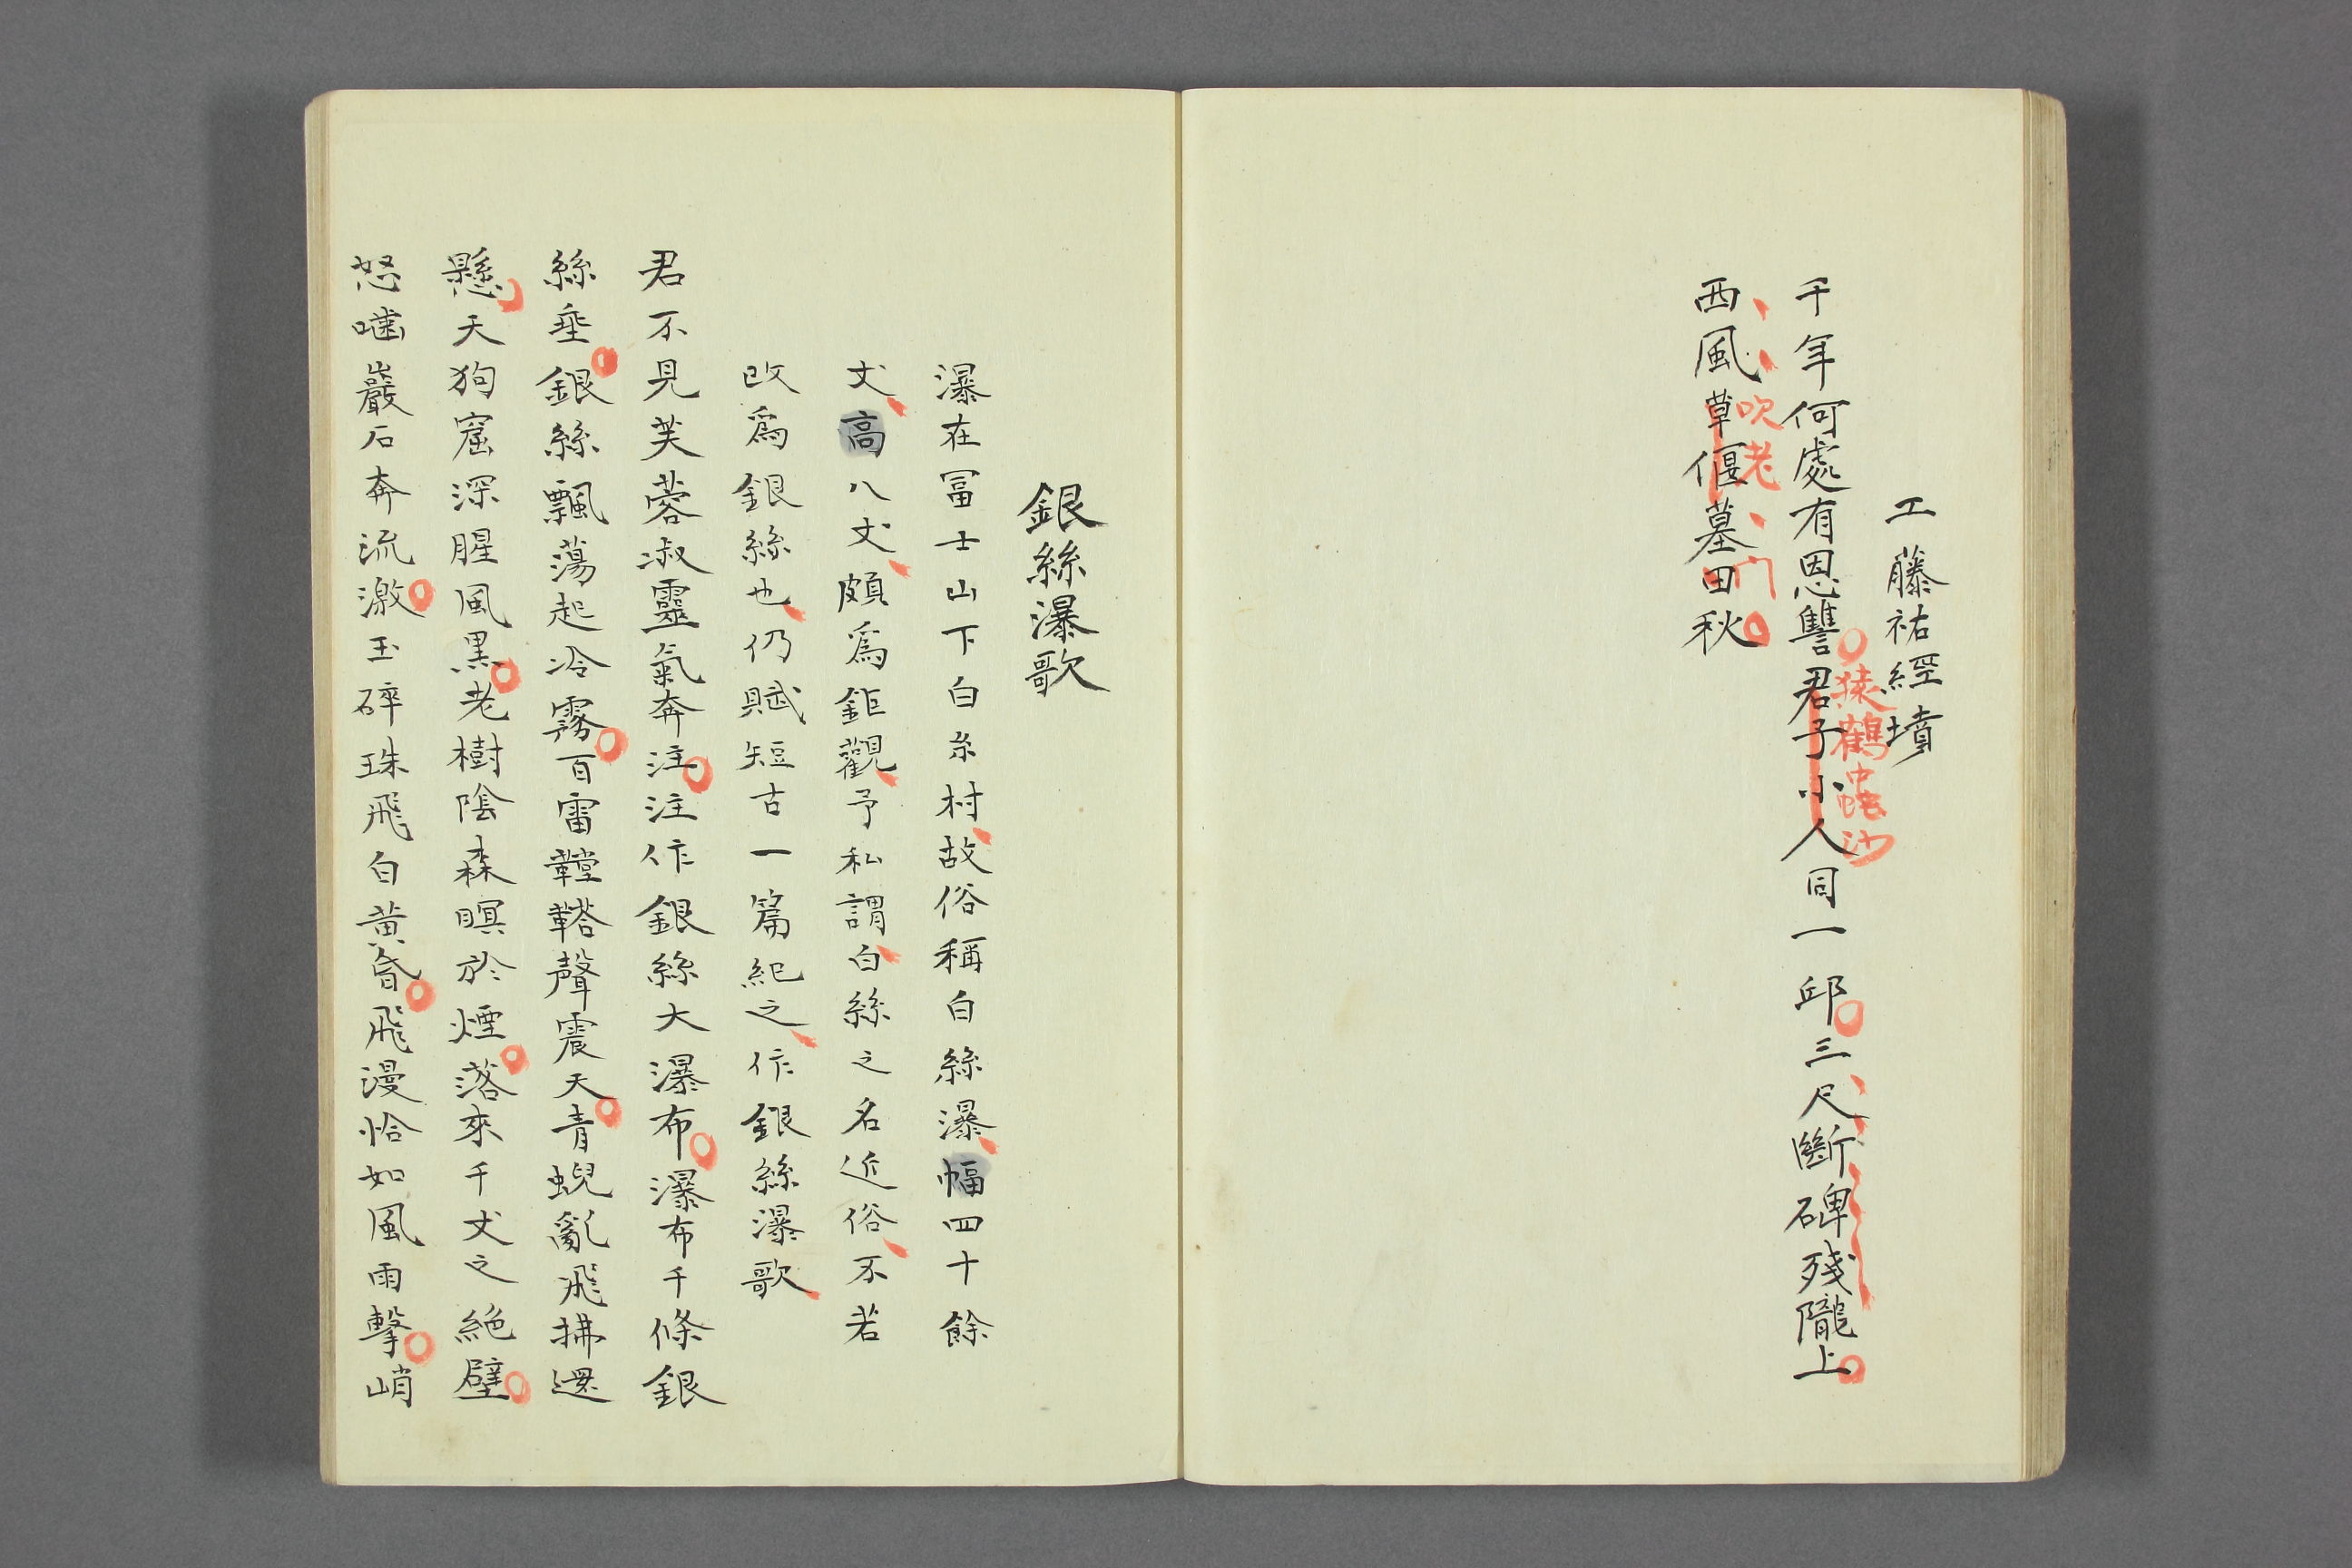 工藤祐經墳
千年何處有恩讐君子小人同一邱三尺斷碑殘隴上
猿鶴虫沙
西風草偃墓田秋
吹老
門
銀絲瀑歌
瀑在冨士山下白糸村故俗稱白絲瀑幅四十餘
丈高八丈頗爲鉅觀予私謂白絲之名近俗不若
改爲銀絲也仍賦短古一篇紀之作銀絲瀑歌
君不見芙蓉淑靈氣奔注注作銀絲大瀑布瀑布千條銀
絲垂銀絲飄蕩起冷霧百雷鞺鞳聲震天青蜺亂飛拂還
懸天狗窟深腥風黒老樹陰森暝於煙落來千丈之絶壁
怒嚙巖石奔流激玉碎珠飛白黄昏飛漫恰如風雨擊峭